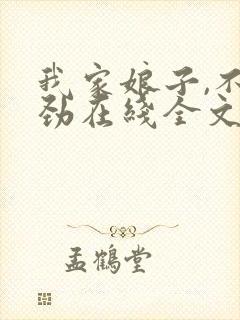 我家娘子,不
劲在线全文
孟鹤堂